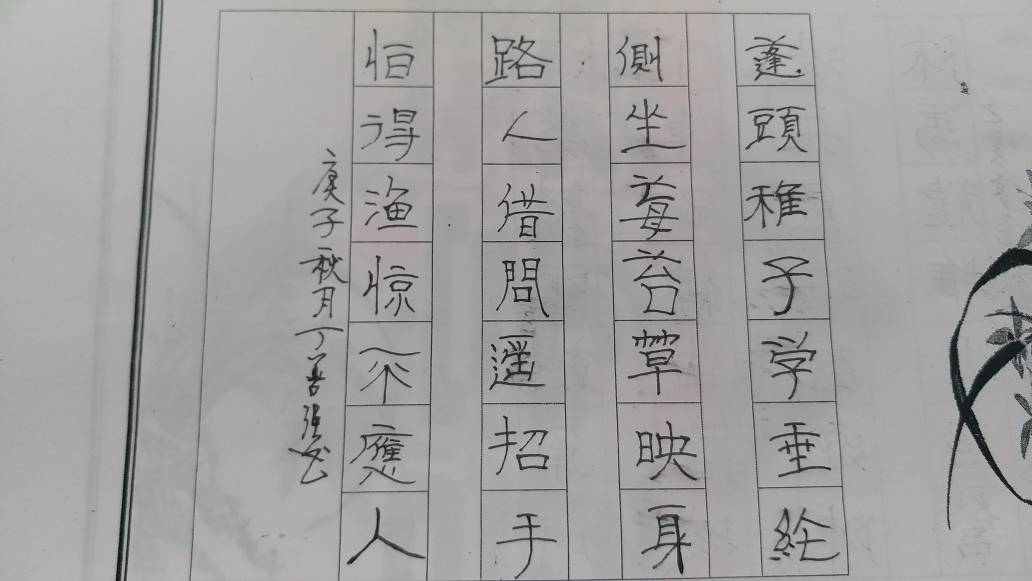 蓬頭稚子学垂纶
側坐莓苔草映身
路人借問遥招手
怕得渔惊不應人
庚子秋月丁善强书